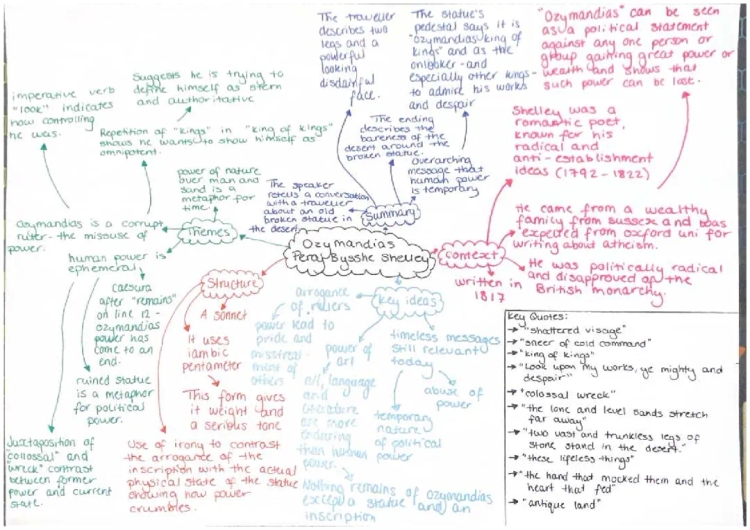 The traveller
describes two
legs and a
powerful
looking
disdainful
face.
The statue's
pedestal says it is
"Ozymandias, king of
kings" and as the
onlooker - and
especially other kings-
to admire his works
and despair
"Ozymandias" can be seen
as a political statement
against any one person or
group gaining great power or
wealth and shows that
such power can be lost.
imperative verb
"look" indicates
how controlling
he was.
Suggests he is trying to
define himself as stern
and authoritative
Repetition of "kings" in "king of kings"
shows he wants to show himself as
omnipotent.
The ending
describes the
bareness of the
desert around the
broken statue.
Overarching
message that
human power
is temporary
Shelley was a
romantic poet,
known for his
radical and
anti-establishment
ideas (1792-1822)
power of nature
over man and
sand is a
metaphor for
time.
The speaker
retells a conversation
with a traveller
about an old
broken statue in
the desert
Summary
He came from a wealthy
family from sussex and was
expelled from oxford uni for
writing about atheism.
Ozymandias is a corrupt
ruler - the missuse of
power.
Themes
Ozymandias
Peray Bysshe Shelley
Context
He was politically radical
and disapproved of the
British monarchy.
written in
1817
human power is
ephemeral
caesura
after "remains"
on line 12 -
ozymandias
power has
come to an
end.
ruined statue
is a metaphor
for political
power.
Juxtaposition of
"collosal" and
"wreck" contrast
between former
power and current
state.
Structure
A sonnet
It uses
iambic
pentameter
This form gives
it weight and
a serious tone
Use of irony to contrast
the arrogance of the
inscription with the actual
physical state of the statue
showing how power
crumbles.
Key ideas
arrogance
of rulers
power lead to
pride and
mistreat-
ment of
others
power of
art
art, language
and
literature
are more
enduring
than human
power.
Nothing remains of Ozymandias
except a statue and an
inscription
timeless messages
still relevant
today
abuse of
power
temporary
nature
of political
power
Key Quotes:
→ "shattered visage"
→ "sneer of cold command"
→ "king of kings"
→ "Look upon my works, ye mighty and
despair"
→ "colossal wreck"
→ "the lone and level sands stretch
far away"
→ "two vast and trunkless legs of
stone stand in the desert."
→ "these lifeless things"
→ "the hand that mocked them and the
heart that fed"
→ "antique land"